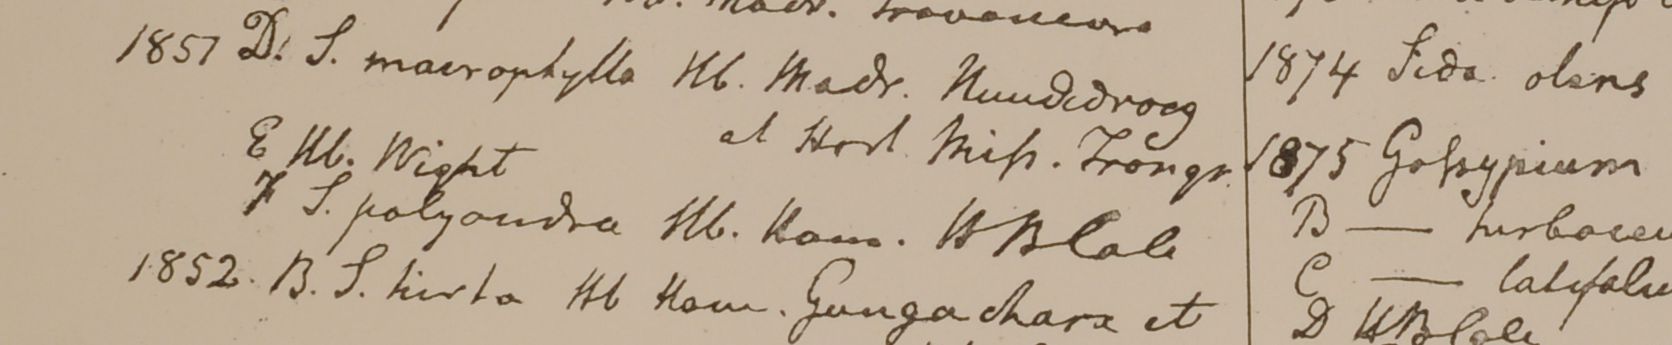 Hb. Madr. Travancora
1851 D. S. macrophylla Hb. Madr. Nundidroog
et Hort. Miss. Trangr.
E Hb. Wight
F S. polyandra Hb. Ham. HBCalc
1852. B. S. hirta Hb Ham. Gungachara et
1874 Sida olens
1875 Gossypium
B —— herbaceu
C —— latifoliu
D HBCalc